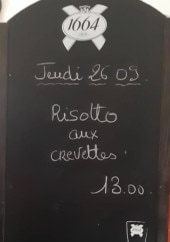 1664
Jeudi 26 09.
Risotto
aux
crevettes
13.00